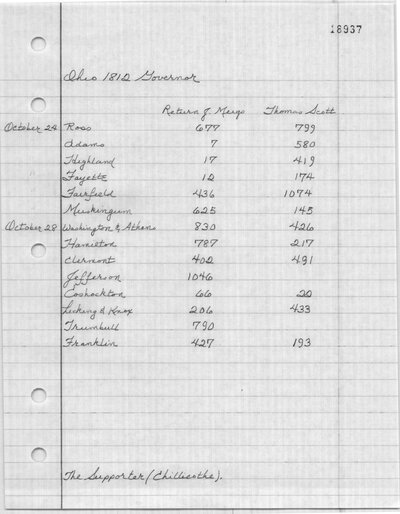 18937
Ohio 1812 Governor
Return J. Meigs Thomas Scott
October 24 Ross 677 799
Adams 7 580
Highland 17 419
Fayette 12 174
Fairfield 436 1074
Muskingum 625 145
October 28 Washington & Athens 830 426
Hamilton 787 217
Clermont 402 491
Jefferson 1046
Coshockton 66 20
Licking & Knox 206 433
Trumbull 790
Franklin 427 193
The Supporter (Chillicothe).